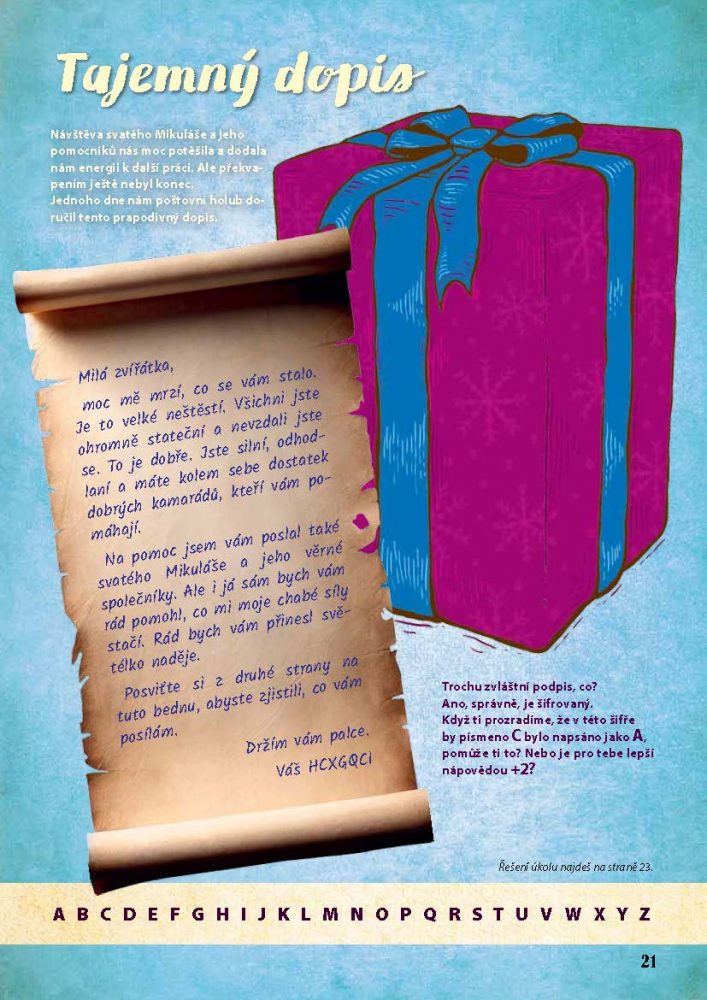 Tajemný dopis
Návštěva svatého Mikuláše a jeho
pomocníků nás moc potěšila a dodala
nám energii k další práci. Ale překva-
pením ještě nebyl konec.
Jednoho dne nám poštovní holub do-
ručil tento prapodivný dopis.
Milá zvířátka,
moc mě mrzí, co se vám stalo.
Je to velké neštěstí. Všichni jste
ohromně stateční a nevzdali jste
se. To je dobře. Jste silní, odhod-
laní a máte kolem sebe dostatek
dobrých kamarádů, kteří vám po-
máhají.
Na pomoc jsem vám poslal také
svatého Mikuláše a jeho věrné
společníky. Ale i já sám bych vám
rád pomohl, co mi moje chabé síly
stačí. Rád bych vám přinesl svě-
télko naděje.
Posviťte si z druhé strany na
tuto bednu, abyste zjistili, co vám
posílám.
Držím vám palce.
Váš HCXGQCI
Trochu zvláštní podpis, co?
Ano, správně, je šifrovaný.
Když ti prozradíme, že v této šifře
by písmeno C bylo napsáno jako A,
pomůže ti to? Nebo je pro tebe lepší
nápovědou +2?
Řešení úkolu najdeš na straně 23.
A B C D E F G H I J K L M N O P Q R S T U V W X Y Z
21